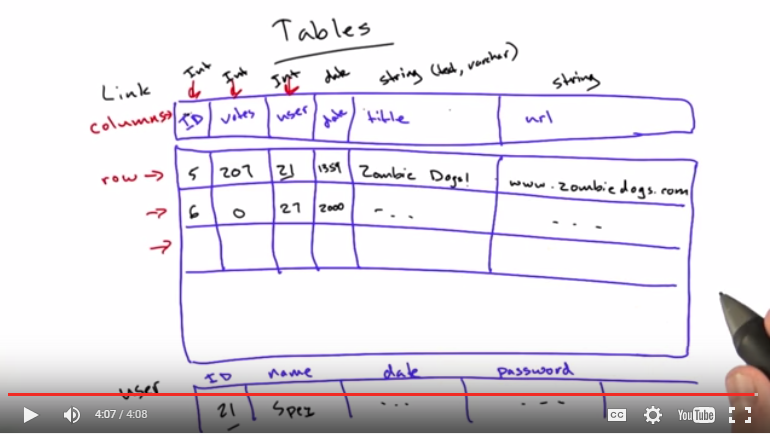 Tables
Link Int Int Int date string (text, varchar) string
columns ID votes user date title url
row 5 207 21 1359 Zombie Dogs! www.zombiedogs.com
6 0 27 2000 - . . - - -
ID name date password
user 21 Spez . . . - - -
4:07 / 4:08 CC YouTube